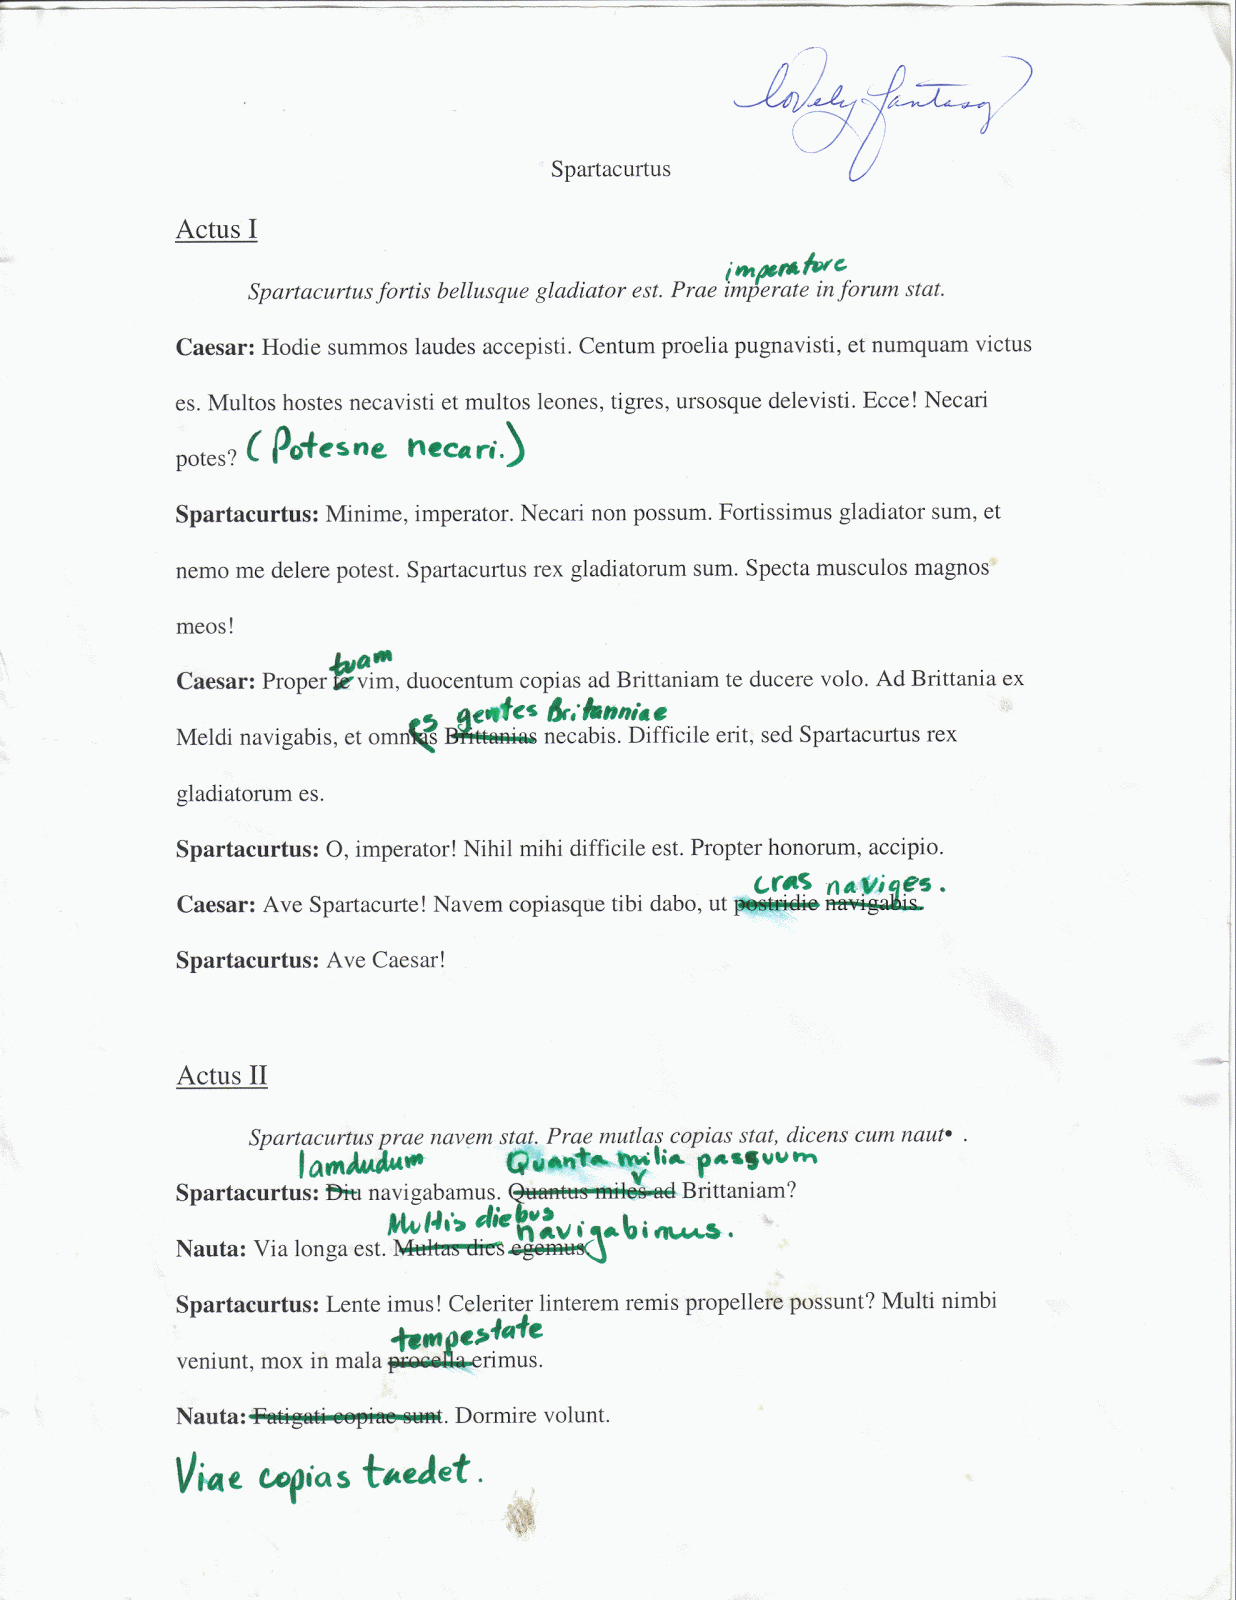 lovely fantasy
Spartacurtus
Actus I
imperatore
Spartacurtus fortis bellusque gladiator est. Prae imperate in forum stat.
Caesar: Hodie summos laudes accepisti. Centum proelia pugnavisti, et numquam victus
es. Multos hostes necavisti et multos leones, tigres, ursosque delevisti. Ecce! Necari
potes? (Potesne necari.)
Spartacurtus: Minime, imperator. Necari non possum. Fortissimus gladiator sum, et
nemo me delere potest. Spartacurtus rex gladiatorum sum. Specta musculos magnos
meos!
tuam
Caesar: Proper te vim, duocentum copias ad Brittaniam te ducere volo. Ad Brittania ex
es gentes Britanniae
Meldi navigabis, et omnias Brittanias necabis. Difficile erit, sed Spartacurtus rex
gladiatorum es.
Spartacurtus: O, imperator! Nihil mihi difficile est. Propter honorum, accipio.
cras naviges.
Caesar: Ave Spartacurte! Navem copiasque tibi dabo, ut postridie navigabis.
Spartacurtus: Ave Caesar!
Actus II
Spartacurtus prae navem stat. Prae mutlas copias stat, dicens cum naut• .
Iamdudum Quanta milia passuum
Spartacurtus: Diu navigabamus. Quantus miles ad Brittaniam?
Multis diebus navigabimus.
Nauta: Via longa est. Multas dies egemus
Spartacurtus: Lente imus! Celeriter linterem remis propellere possunt? Multi nimbi
tempestate
veniunt, mox in mala procella erimus.
Nauta: Fatigati copiae sunt. Dormire volunt.
Viae copias taedet.